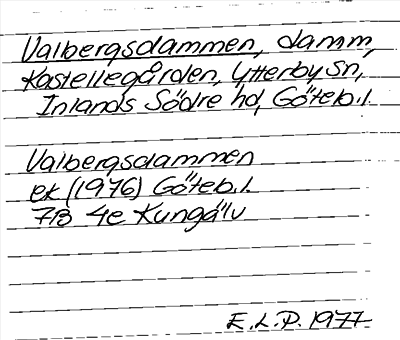 Valbergsdammen, damm,
Kastellegården, Ytterby sn,
Inlands Södre hd, Göteb.l.
Valbergsdammen
ek (1976) Göteb.l.
7B 4e Kungälv
E.L.P. 1977